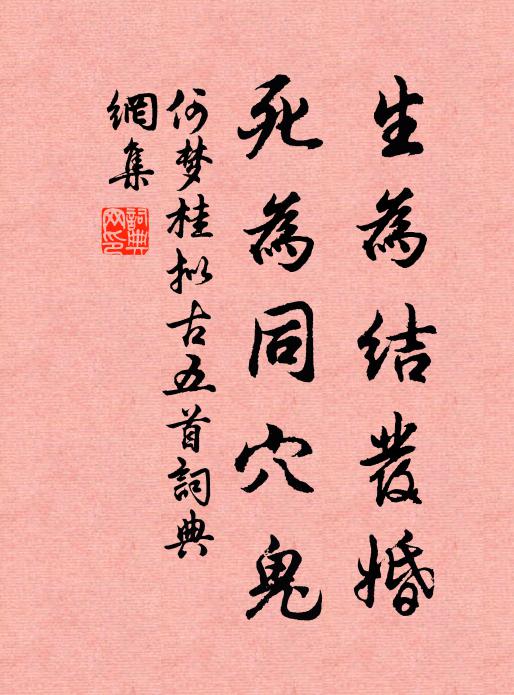 生為結發婚
死為同穴鬼
何梦桂拟古五首詞典
網集
詞典網印